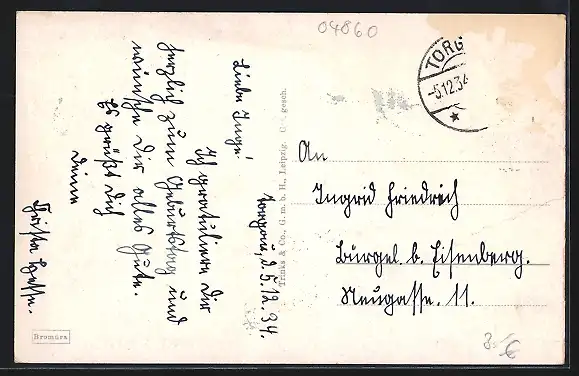 04860
Torgau, d. 5.12.34.
Liebe Inge!
Ich gratuliere Dir
herzlich zum Geburtstag und
wünsche Dir alles Gute.
Es grüßt Dich
Deine
Christa
Trinks & Co., G. m. b. H., Leipzig. gesch.
TORG
-5.12.34
An
Ingrid Friedrich
Bürgel. b. Eisenberg.
Neugasse. 11.
Bromüra
8.-€